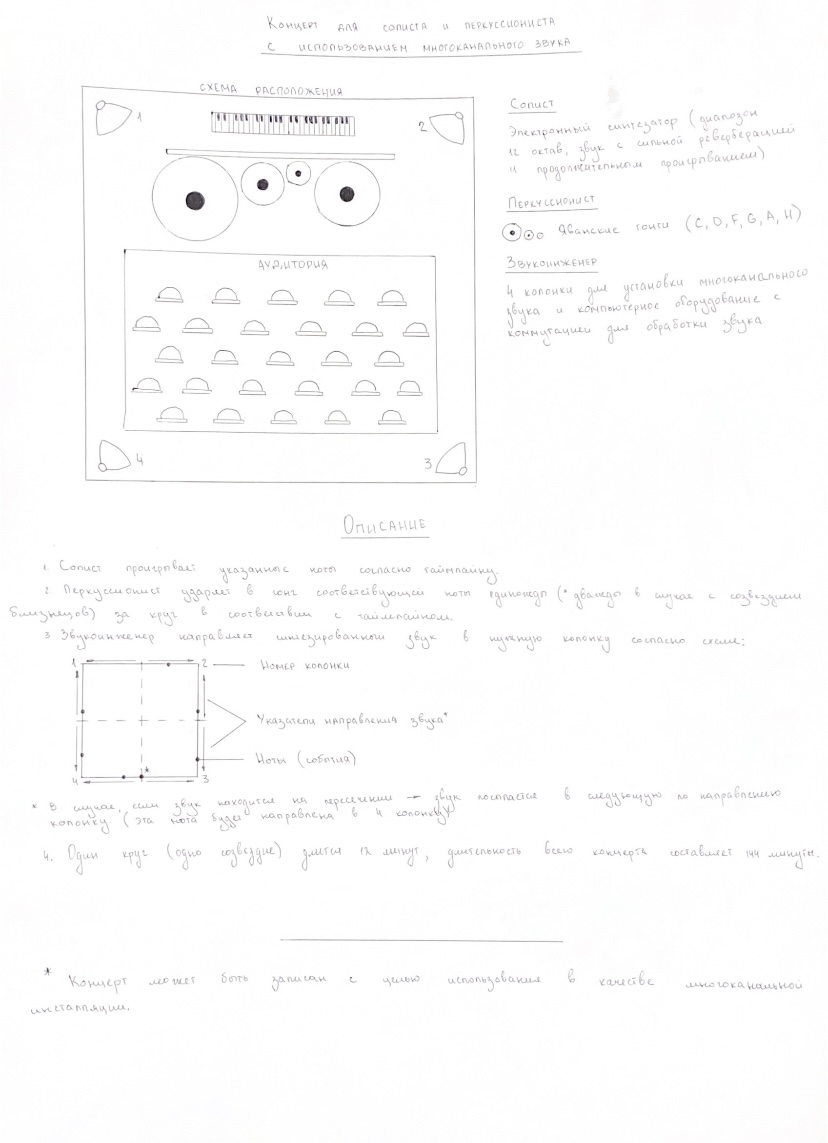 Концерт для солиста и перкуссиониста
с использованием многоканального звука
СХЕМА РАСПОЛОЖЕНИЯ
1
2
АУДИТОРИЯ
4
3
Солист
Электронный синтезатор (диапазон
12 октав, звук с сильной реверберацией
и продолжительным проигрыванием)
Перкуссионист
Яванские гонги (C, D, F, G, A, H)
Звукоинженер
4 колонки для установки многоканального
звука и компьютерное оборудование с
коммутацией для обработки звука
Описание
1. Солист проигрывает указанные ноты согласно таймлайну.
2. Перкуссионист ударяет в гонг соответствующей ноты единожды (* дважды в случае с созвездием
близнецов) за круг в соответствии с таймлайном.
3 Звукоинженер направляет синтезированный звук в нужную колонку согласно схеме:
1
2
Номер колонки
Указатели направления звука*
Ноты (события)
*
4
3
* В случае, если звук находится на пересечении — звук посылается в следующую по направлению
колонку (эта нота будет направлена в 4 колонку)
4. Один круг (одно созвездие) длится 12 минут, длительность всего концерта составляет 144 минуты.
* Концерт может быть записан с целью использования в качестве многоканальной
инсталляции.